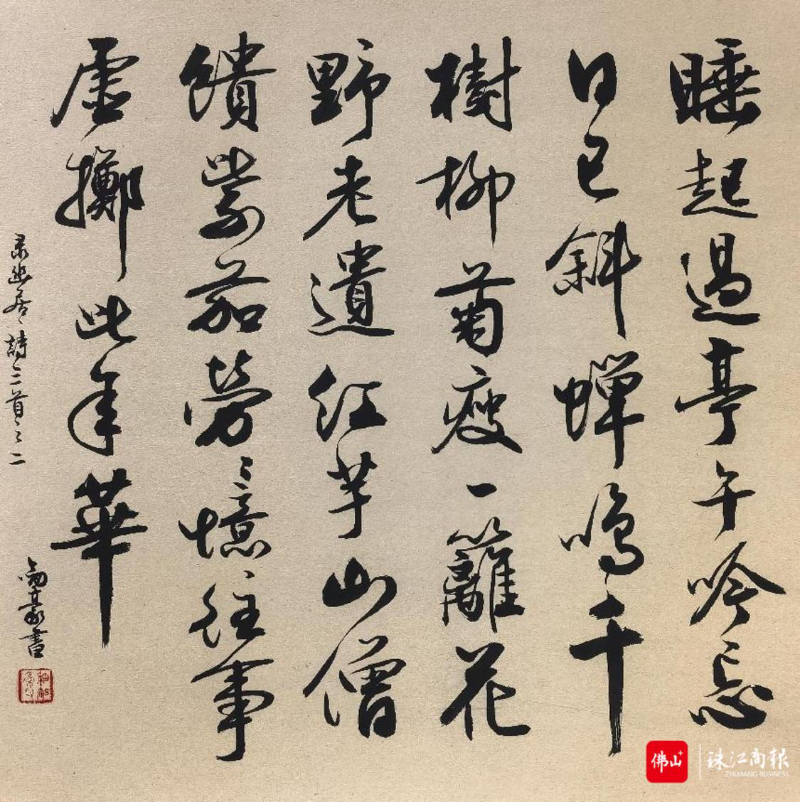 睡起過亭午吟忘
日已斜蟬鳴千
樹柳菊瘦一籬花
野老遺紅芋山僧
饋紫茄勞〻憶往事
虛擲此年華
录幽居詩二首之二
豪書
佛山+
珠江商報
ZHUJIANG BUSINESS